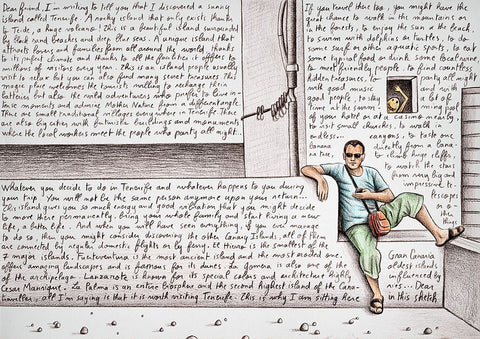 Dear friend, I am writing to tell you that I discovered a sunny
island called Tenerife. A rocky island that only exists thanks
to Teide, a huge volcano! This is a beautiful island surrounded
by black sand beaches and deep blue sea. A unique island that
attracts lovers and families from all around the world, thanks
to its perfect climate and thanks to all the facilities it offers to
millions of visitors every year. This is an island people usually
visit to relax but you can also find many secret treasures. This
magic place welcomes the tourists willing to recharge their
batteries but also the wild adventurers who prefer to live in-
tense moments and admire Mother Nature from a different angle.
There are small traditional villages everywhere in Tenerife. There
are also big cities with futuristic buildings and monuments
where the local workers meet the people who party all night...
Whatever you decide to do in Tenerife and whatever happens to you during
your trip. You will not be the same person anymore upon your return...
This island gives you so much energy and good vibration that you might decide
to move there permanently, bring your whole family and start living a new
life, a better life. And when you will have seen everything, if you ever manage
to do so, then you might consider discovering the other Canary Islands, all of them
are connected by regular domestic flights or by ferry. El Hierro is the smallest of the
7 major islands. Fuerteventura is the most ancient island and the most arid one.
offers amazing landscapes and is famous for its dunes. La Gomera is also one of the
of the archipelago. Lanzarote is known for its special colors and architecture highly
César Manrique. La Palma is an entire Biosphere and the second highest island of the Cana-
traveller, all I'm saying is that it is worth visiting Tenerife. This is why I am sitting here
If you travel there too, you might have the
great chance to walk in the mountains or
in the forests, to enjoy the sun at the beach,
to swim with dolphins & turtles, to
some surf or other aquatic sports, to eat
some typical food or drink some local wine,
meet friendly people. To find countless
hidden treasures, to party all night
with good music and with
good people, to stay a lot of
time at the swim ming pool
of your hotel or a casino nearby
to visit small churches, to walk in
endless... canyons, to taste a
banana directly from a bana
na tree, to climb huge cliffs
to watch the stars
from very big and
impressive te-
lescopes
on the
Gran Canaria
oldest islands
influenced by
ries... Dear
in this sketch